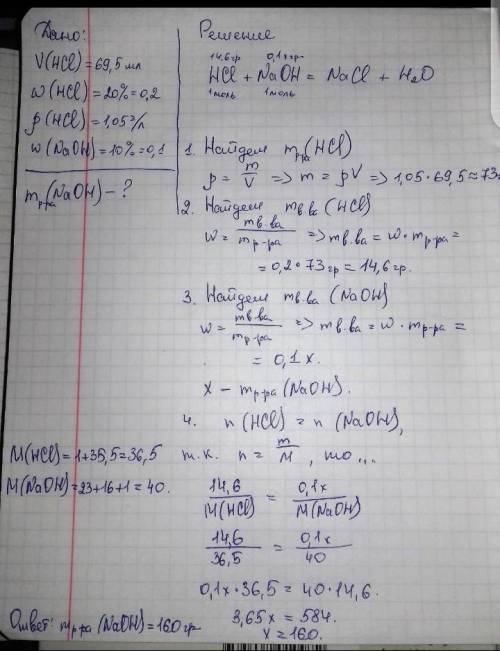 Дано:
V(HCl) = 69,5 мл
ω(HCl) = 20% = 0,2
ρ(HCl) = 1,05 г/л
ω(NaOH) = 10% = 0,1
mр-ра(NaOH) - ?
Решение
14,6гр 0,1x гр
HCl + NaOH = NaCl + H₂O
1моль 1моль
1. Найдем mр-ра(HCl)
ρ = m/V => m = ρV => 1,05·69,5 ≈ 73г
2. Найдем mв.ва (HCl)
ω = mв.ва/mр-ра => mв.ва = ω·mр-ра =
= 0,2·73гр = 14,6гр.
3. Найдем mв.ва (NaOH)
ω = mв.ва/mр-ра => mв.ва = ω·mр-ра =
= 0,1x.
x - mр-ра (NaOH).
4. n(HCl) = n(NaOH),
т.к. n = m/M, то...
14,6/M(HCl) = 0,1x/M(NaOH)
14,6/36,5 = 0,1x/40
0,1x·36,5 = 40·14,6.
3,65x = 584.
x = 160.
M(HCl) = 1+35,5 = 36,5
M(NaOH) = 23+16+1 = 40.
Ответ: mр-ра(NaOH) = 160гр